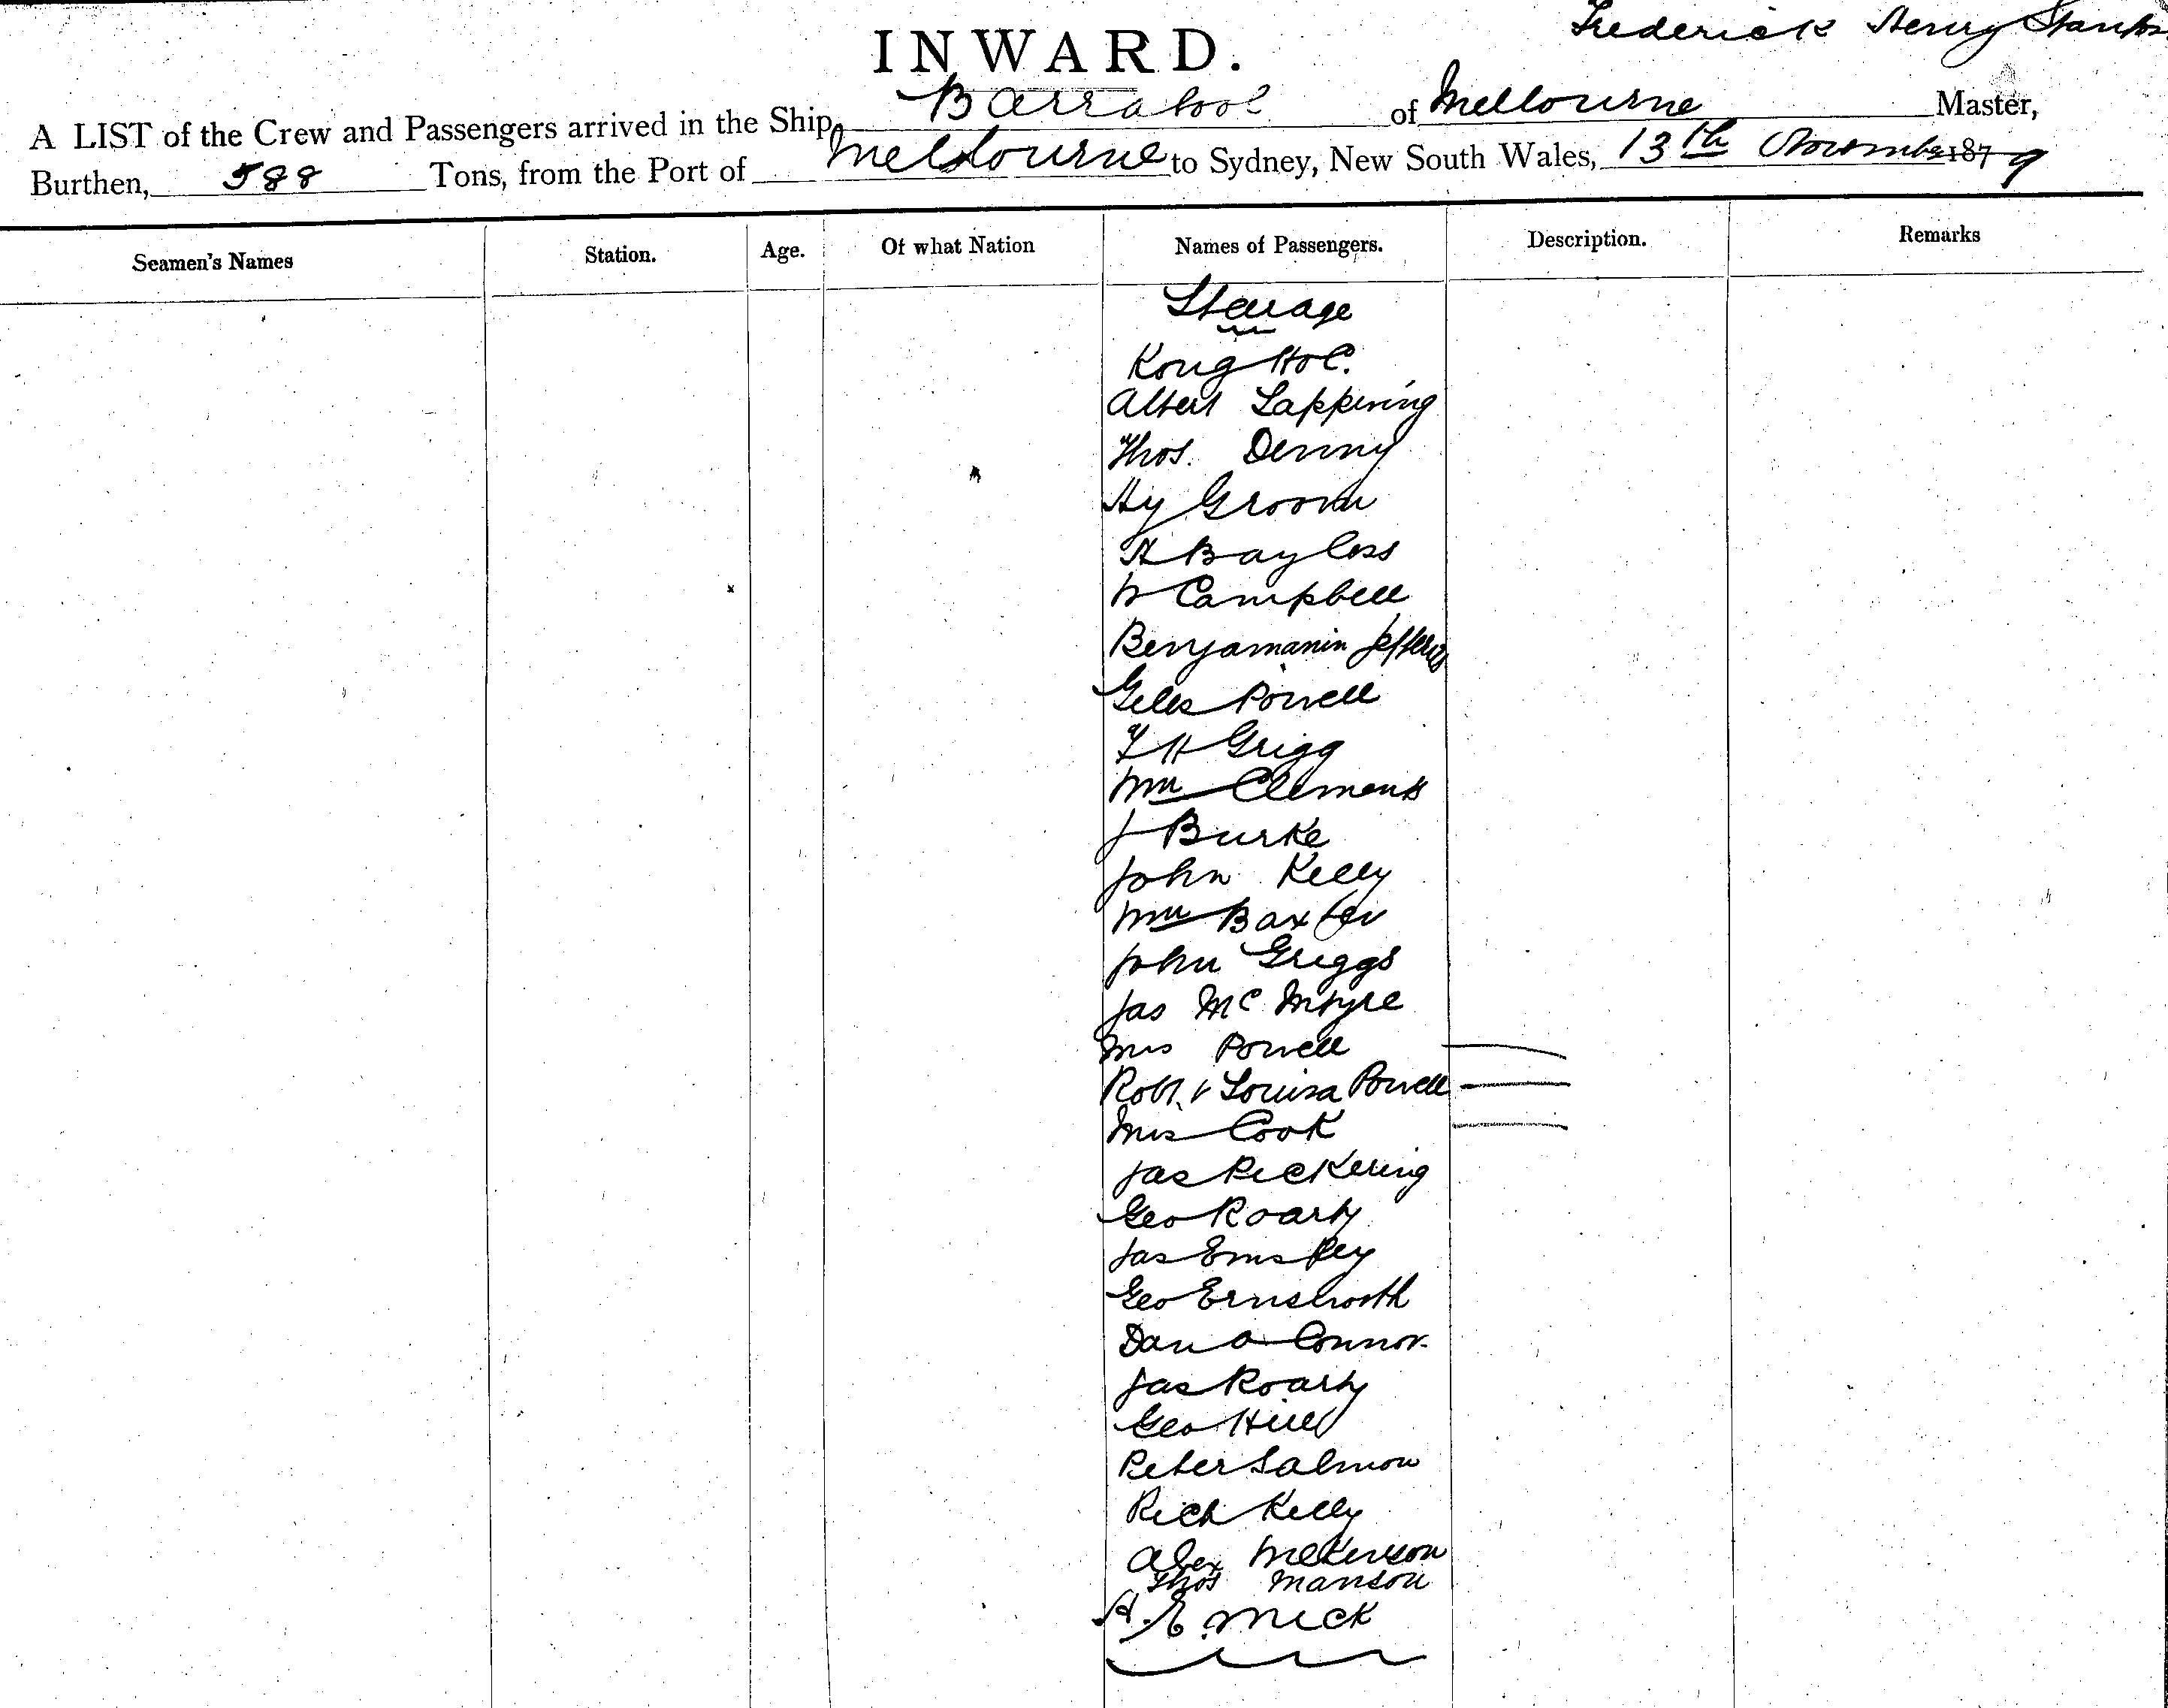 INWARD.
Frederick Henry
A LIST of the Crew and Passengers arrived in the Ship, Barrabool of Melbourne Master,
Burthen, 588 Tons, from the Port of Melbourne to Sydney, New South Wales, 13th November 1879
Seamen's Names Station. Age. Of what Nation Names of Passengers. Description. Remarks
Steerage
Kong
Albert Lappining
Thos. Denny
Hy Groom
H Bayless
W Campbell
Benjamanin Jefferies
Giles Powell
H Grigg
Wm Clements
J Burke
John Kelly
Wm Baxter
John Griggs
Jas Mc Intyre
Mrs Powell
Robt. & Louisa Powell
Mrs Cook
Jas Pickering
Geo Roarty
Jas Emsley
Geo Ernsworth
Dan O Connor
Jas Roarty
Geo Hill
Peter Salmon
Rich Kelly
Alex
Thos Manson
H. E. Mick